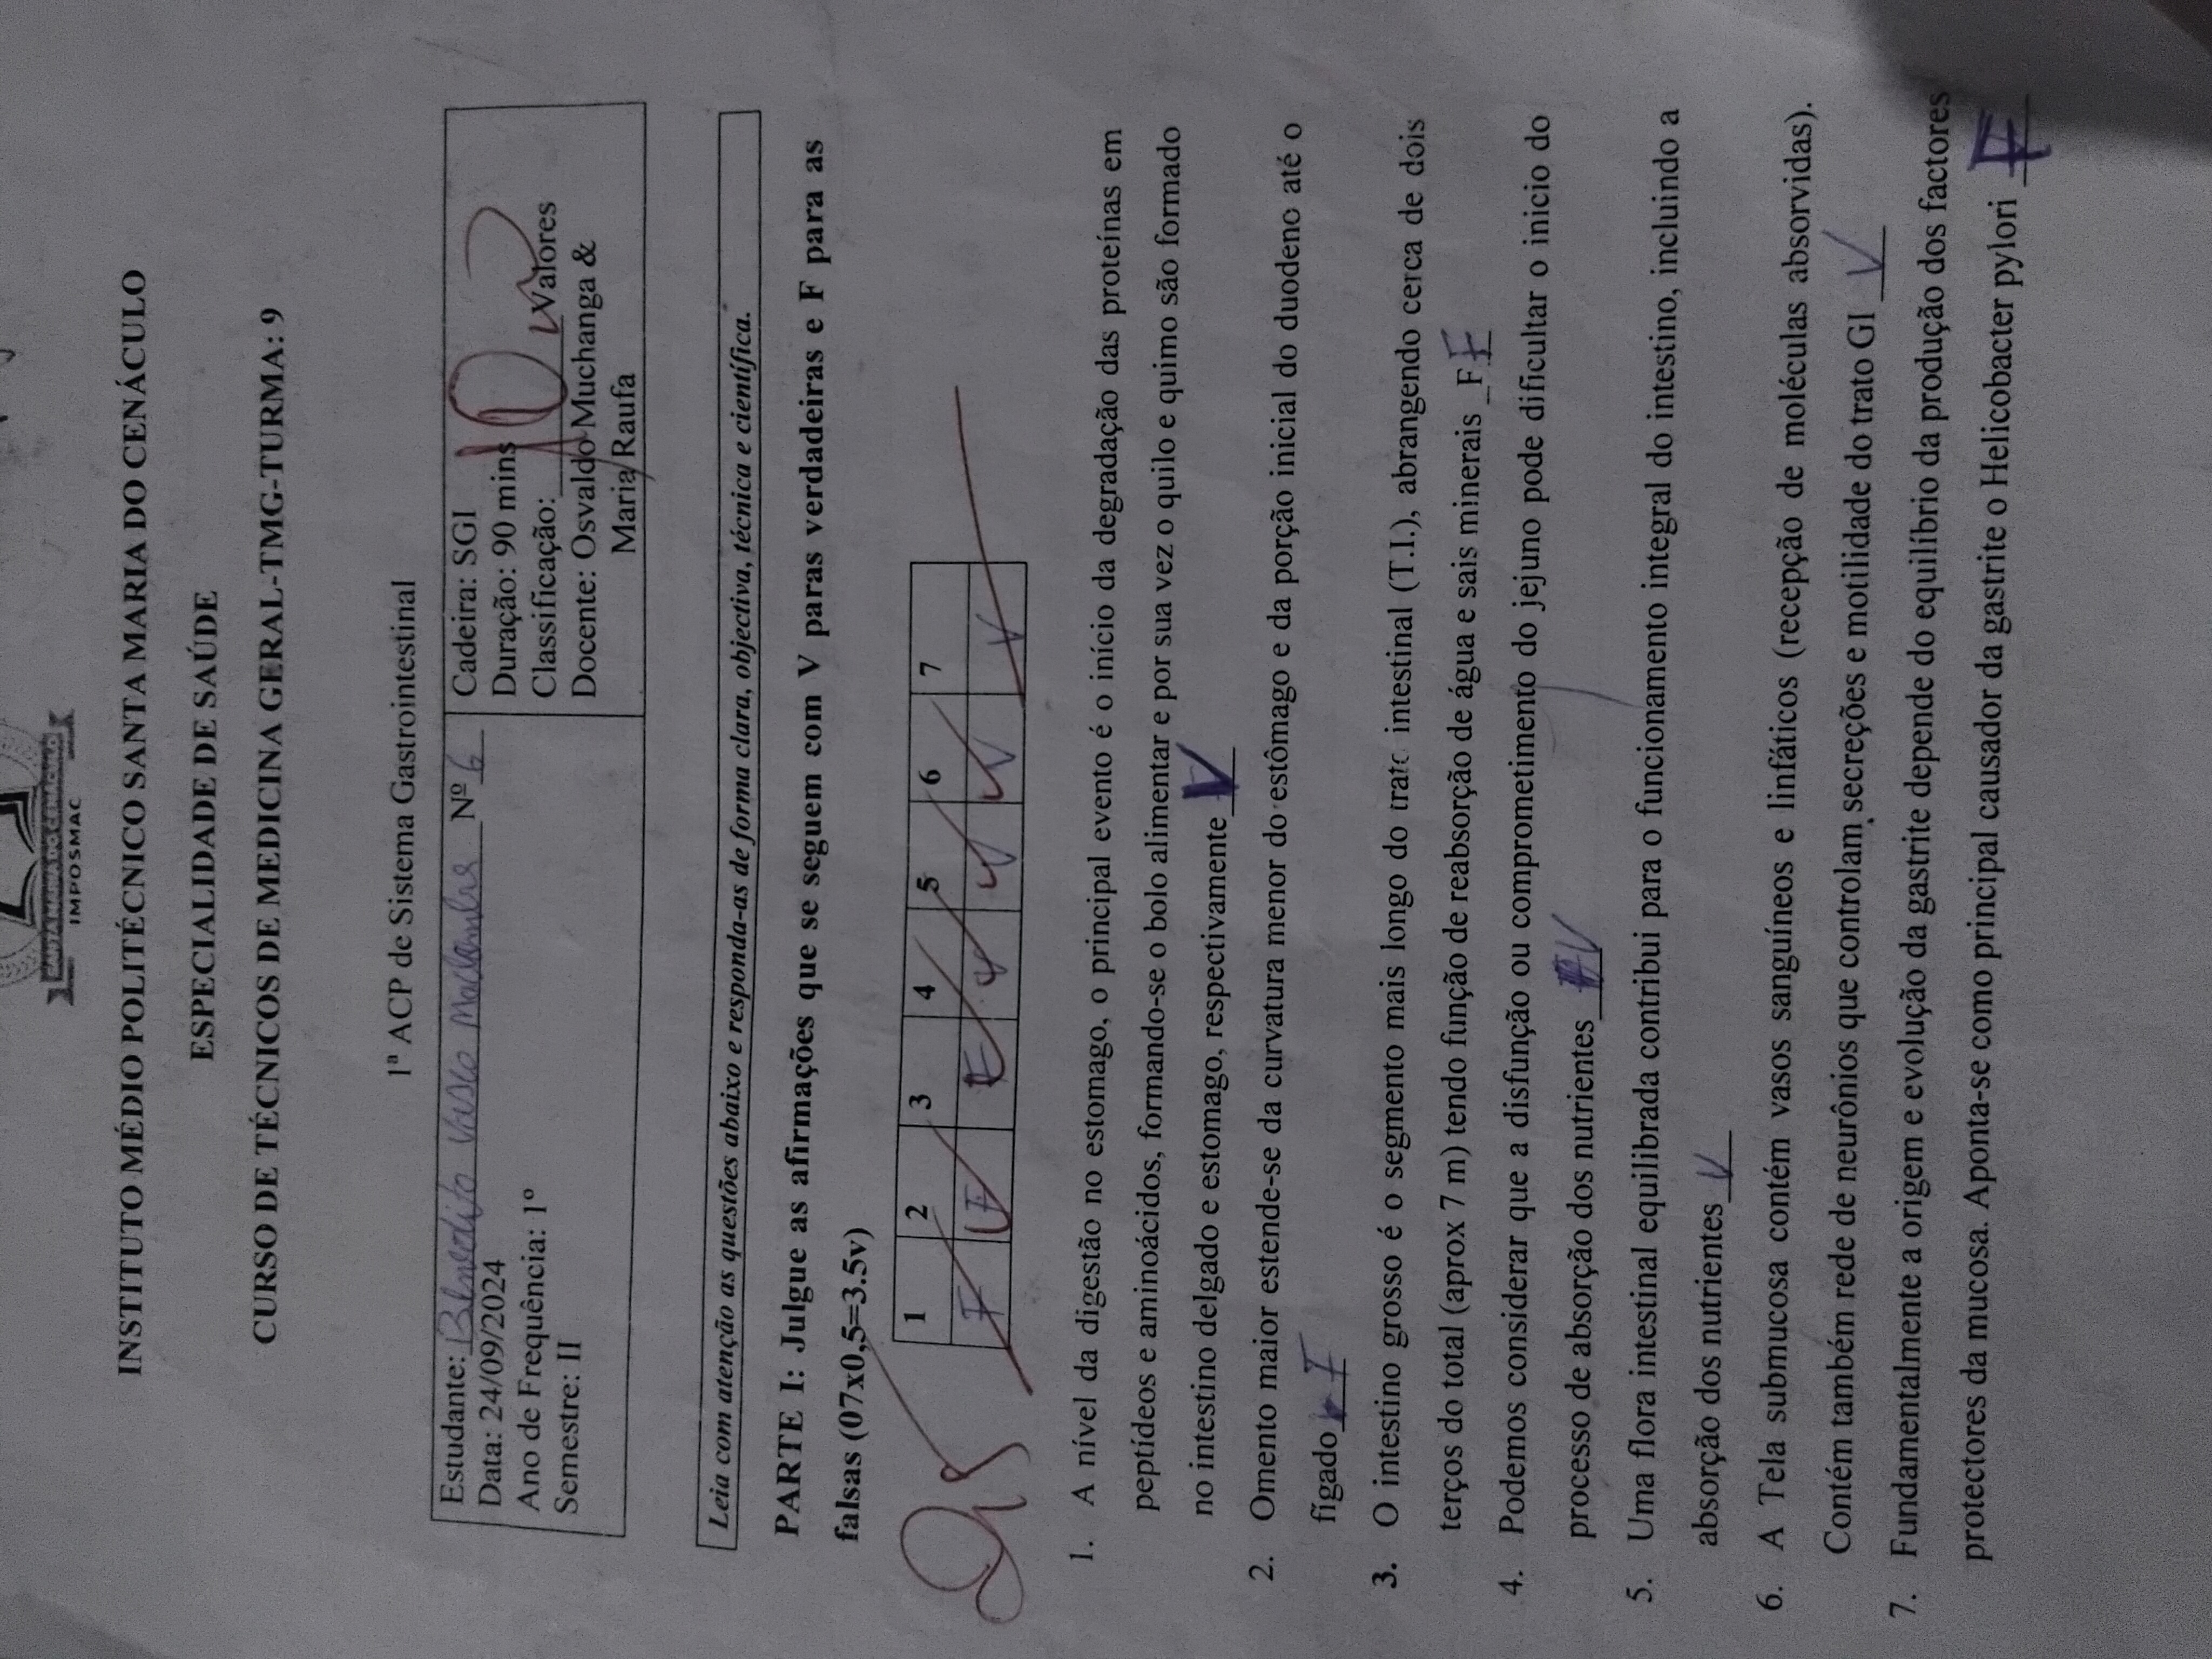 SANTA MARIA DO CENÁCULO
IMPOSMAC
INSTITUTO MÉDIO POLITÉCNICO SANTA MARIA DO CENÁCULO
ESPECIALIDADE DE SAÚDE
CURSO DE TÉCNICOS DE MEDICINA GERAL-TMG-TURMA: 9
1ª ACP de Sistema Gastrointestinal
Estudante: Benedito Vasco Nº 6
Data: 24/09/2024
Ano de Frequência: 1º
Semestre: II
Cadeira: SGI
Duração: 90 mins
Classificação: 10 Valores
Docente: Osvaldo Muchanga &
Maria Raufa
Leia com atenção as questões abaixo e responda-as de forma clara, objectiva, técnica e científica.
PARTE I: Julgue as afirmações que se seguem com V paras verdadeiras e F para as
falsas (07x0,5=3.5v)
2,5
1 2 3 4 5 6 7
F F F V V V V
1. A nível da digestão no estomago, o principal evento é o início da degradação das proteínas em
peptídeos e aminoácidos, formando-se o bolo alimentar e por sua vez o quilo e quimo são formado
no intestino delgado e estomago, respectivamente V
2. Omento maior estende-se da curvatura menor do estômago e da porção inicial do duodeno até o
fígado F
3. O intestino grosso é o segmento mais longo do trato intestinal (T.I.), abrangendo cerca de dois
terços do total (aprox 7 m) tendo função de reabsorção de água e sais minerais _F F
4. Podemos considerar que a disfunção ou comprometimento do jejuno pode dificultar o inicio do
processo de absorção dos nutrientes V
5. Uma flora intestinal equilibrada contribui para o funcionamento integral do intestino, incluindo a
absorção dos nutrientes V
6. A Tela submucosa contém vasos sanguíneos e linfáticos (recepção de moléculas absorvidas).
Contém também rede de neurônios que controlam secreções e motilidade do trato GI V
7. Fundamentalmente a origem e evolução da gastrite depende do equilíbrio da produção dos factores
protectores da mucosa. Aponta-se como principal causador da gastrite o Helicobacter pylori F